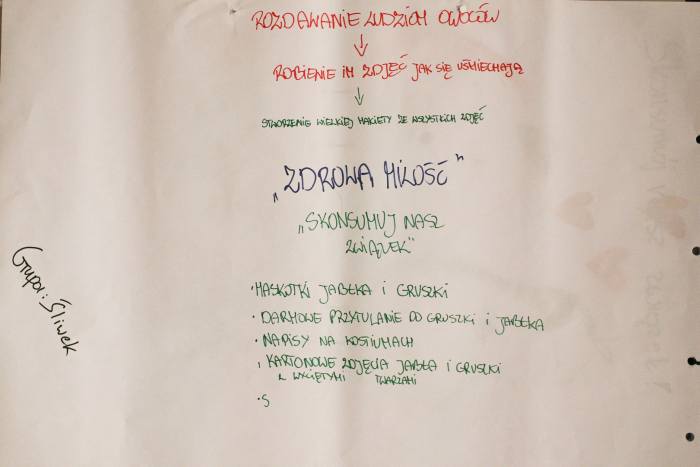 ROZDAWANIE LUDZIOM OWOCÓW
ROBIENIE IM ZDJĘĆ JAK SIĘ UŚMIECHAJĄ
STWORZENIE WIELKIEJ MAKIETY ZE WSZYSTKICH ZDJĘĆ
„ZDROWA MIŁOŚĆ”
„SKONSUMUJ NASZ
ZWIĄZEK”
• MASKOTKI JABŁKA I GRUSZKI
• DARMOWE PRZYTULANIE DO GRUSZKI I JABŁKA
• NAPISY NA KOSTIUMACH
• KARTONOWE ZDJĘCIA JABŁA I GRUSZKI
Z WYCIĘTYMI TWARZAMI
• S
Grupa: Śliwek